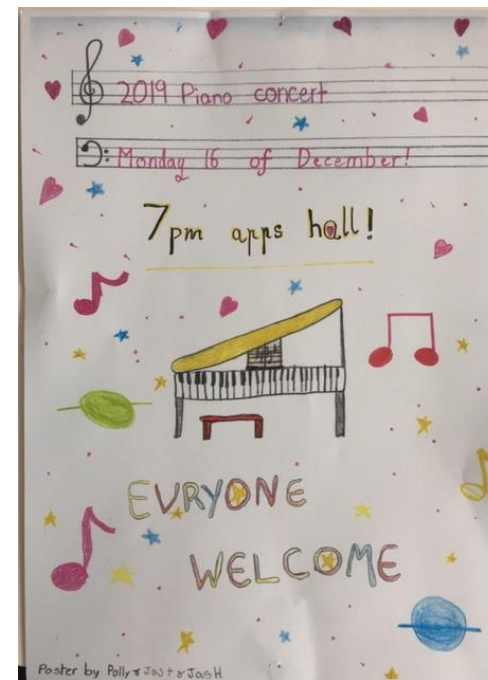 2019 Piano concert
Monday 16 of December!
7pm apps hall!
EVRYONE
WELCOME
Poster by Polly & Jas + & Jas H